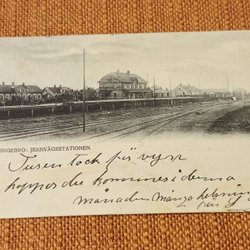 INGEBRO: JERNVÄGSSTATIONEN.
Tusen tack för vyer
hoppas du kommer i denna
månaden Många helsning